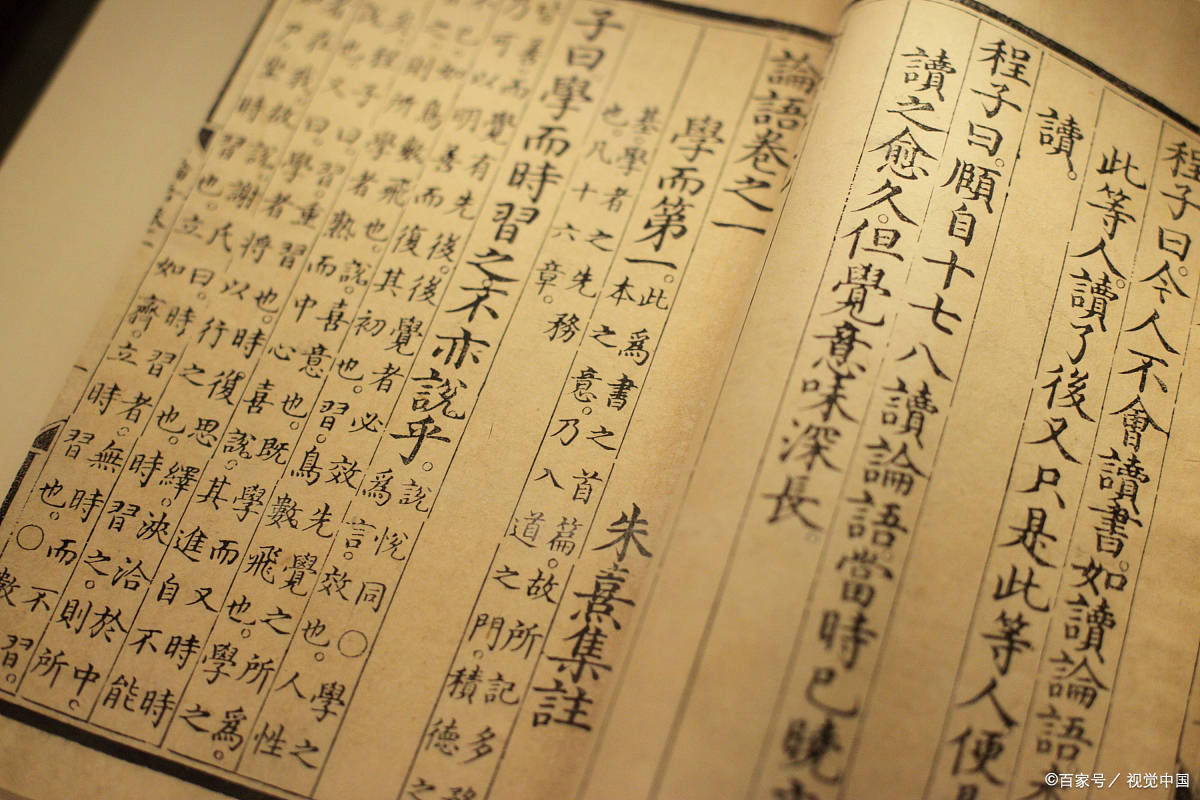 程子曰。今人不會讀書。如讀論語
此等人。讀了後又只是此等人便
讀。
程子曰。頤自十七八讀論語當時已曉
讀之愈久。但覺意味深長。
論語卷之一
朱熹集註
學而第一。此為書之首篇。故所記多務
本之意。乃入道之門。積德之
基學者之先務
也。凡十六章。
子曰學而時習之不亦說乎。說悅同○學之
為言。效也。人性
皆善。而覺有先後。後覺者必效先覺之所為。
乃可以明善而復其初也。習。鳥數飛也。學之
不已。如鳥數飛也。說。喜意也。既學而又時時
習之。則所學者熟。而中心喜說。其進自不能
程子曰。習。重習也。時復思繹。浹洽於中。
也。又曰。學者將以行之也。時習之。則所
在我。故說。謝氏曰。時習者。無時而不習。
尸。坐時習也。立如齊。立時習也。○
©百家号/视觉中国